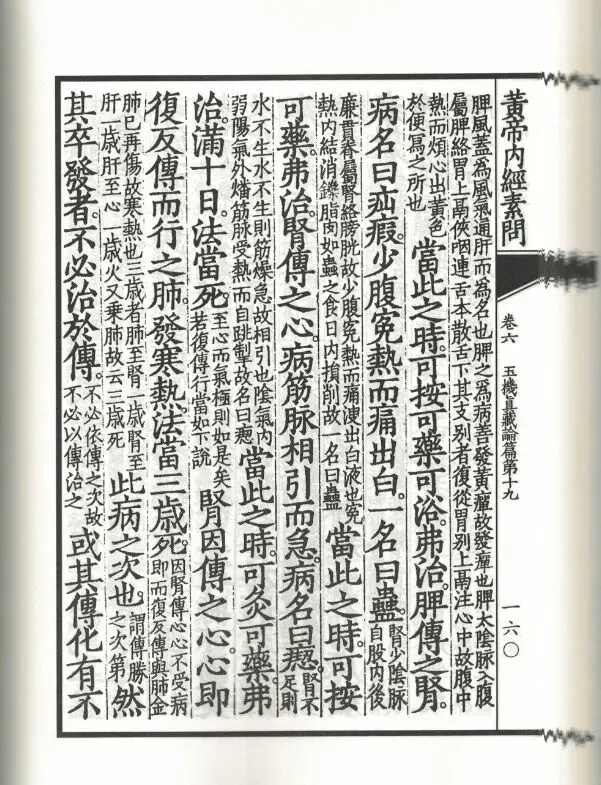 黃帝內經素問
卷六　五機真藏論篇第十九
一六〇
脾風蓋為風氣通肝而為名也脾之為病善發黃癉故發癉也脾太陰脉入腹
屬脾絡胃上鬲俠咽連舌本散舌下其支別者復從胃別上鬲注心中故腹中
熱而煩心出黃色
於便寫之所也
當此之時。可按可藥可浴。弗治。脾傳之腎。
病名曰疝瘕。少腹寃熱而痛出白。一名曰蠱。
腎少陰脉
自股內後
廉貫脊屬腎絡膀胱故少腹寃熱而痛溲出白液也寃
熱內結消鑠脂肉如蟲之食日內損削故一名曰蠱
當此之時。可按
可藥。弗治。腎傳之心。病筋脉相引而急。病名曰瘛。
腎不
足則
水不生水不生則筋燥急故相引也陰氣內
弱陽氣外燔筋脉受熱而自跳掣故名曰瘛
當此之時。可灸可藥。弗
治。滿十日。法當死。
至心而氣極則如是矣
若復傳行當如下說
腎因傳之心。心即
復反傳而行之肺。發寒熱。法當三歲死。
因腎傳心心不受病
即而復反傳與肺金
肺已再傷故寒熱也三歲者肺至腎一歲腎至
肝一歲肝至心一歲火又乘肺故云三歲死
此病之次也。
謂傳勝
之次第
然
其卒發者。不必治於傳。
不必依傳之次故
不必以傳治之
或其傳化有不